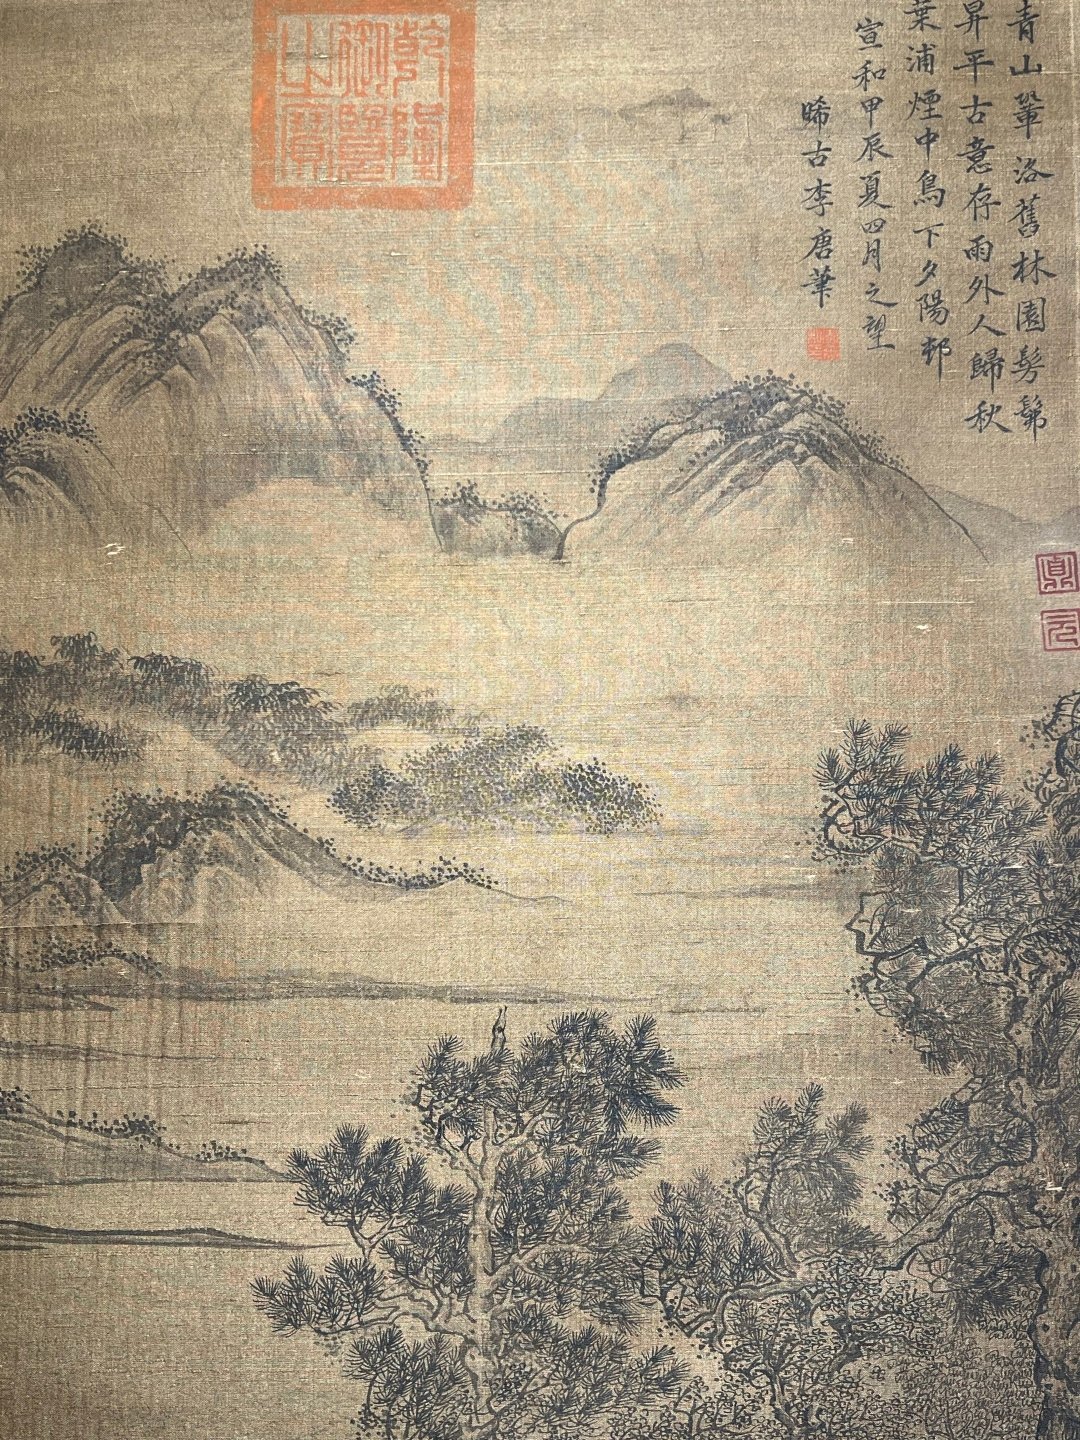 青山鞏洛舊林園髣髴
昇平古意存雨外人歸秋
葉浦煙中鳥下夕陽邨
宣和甲辰夏四月之望
晞古李唐筆
乾隆
御覽
之寶